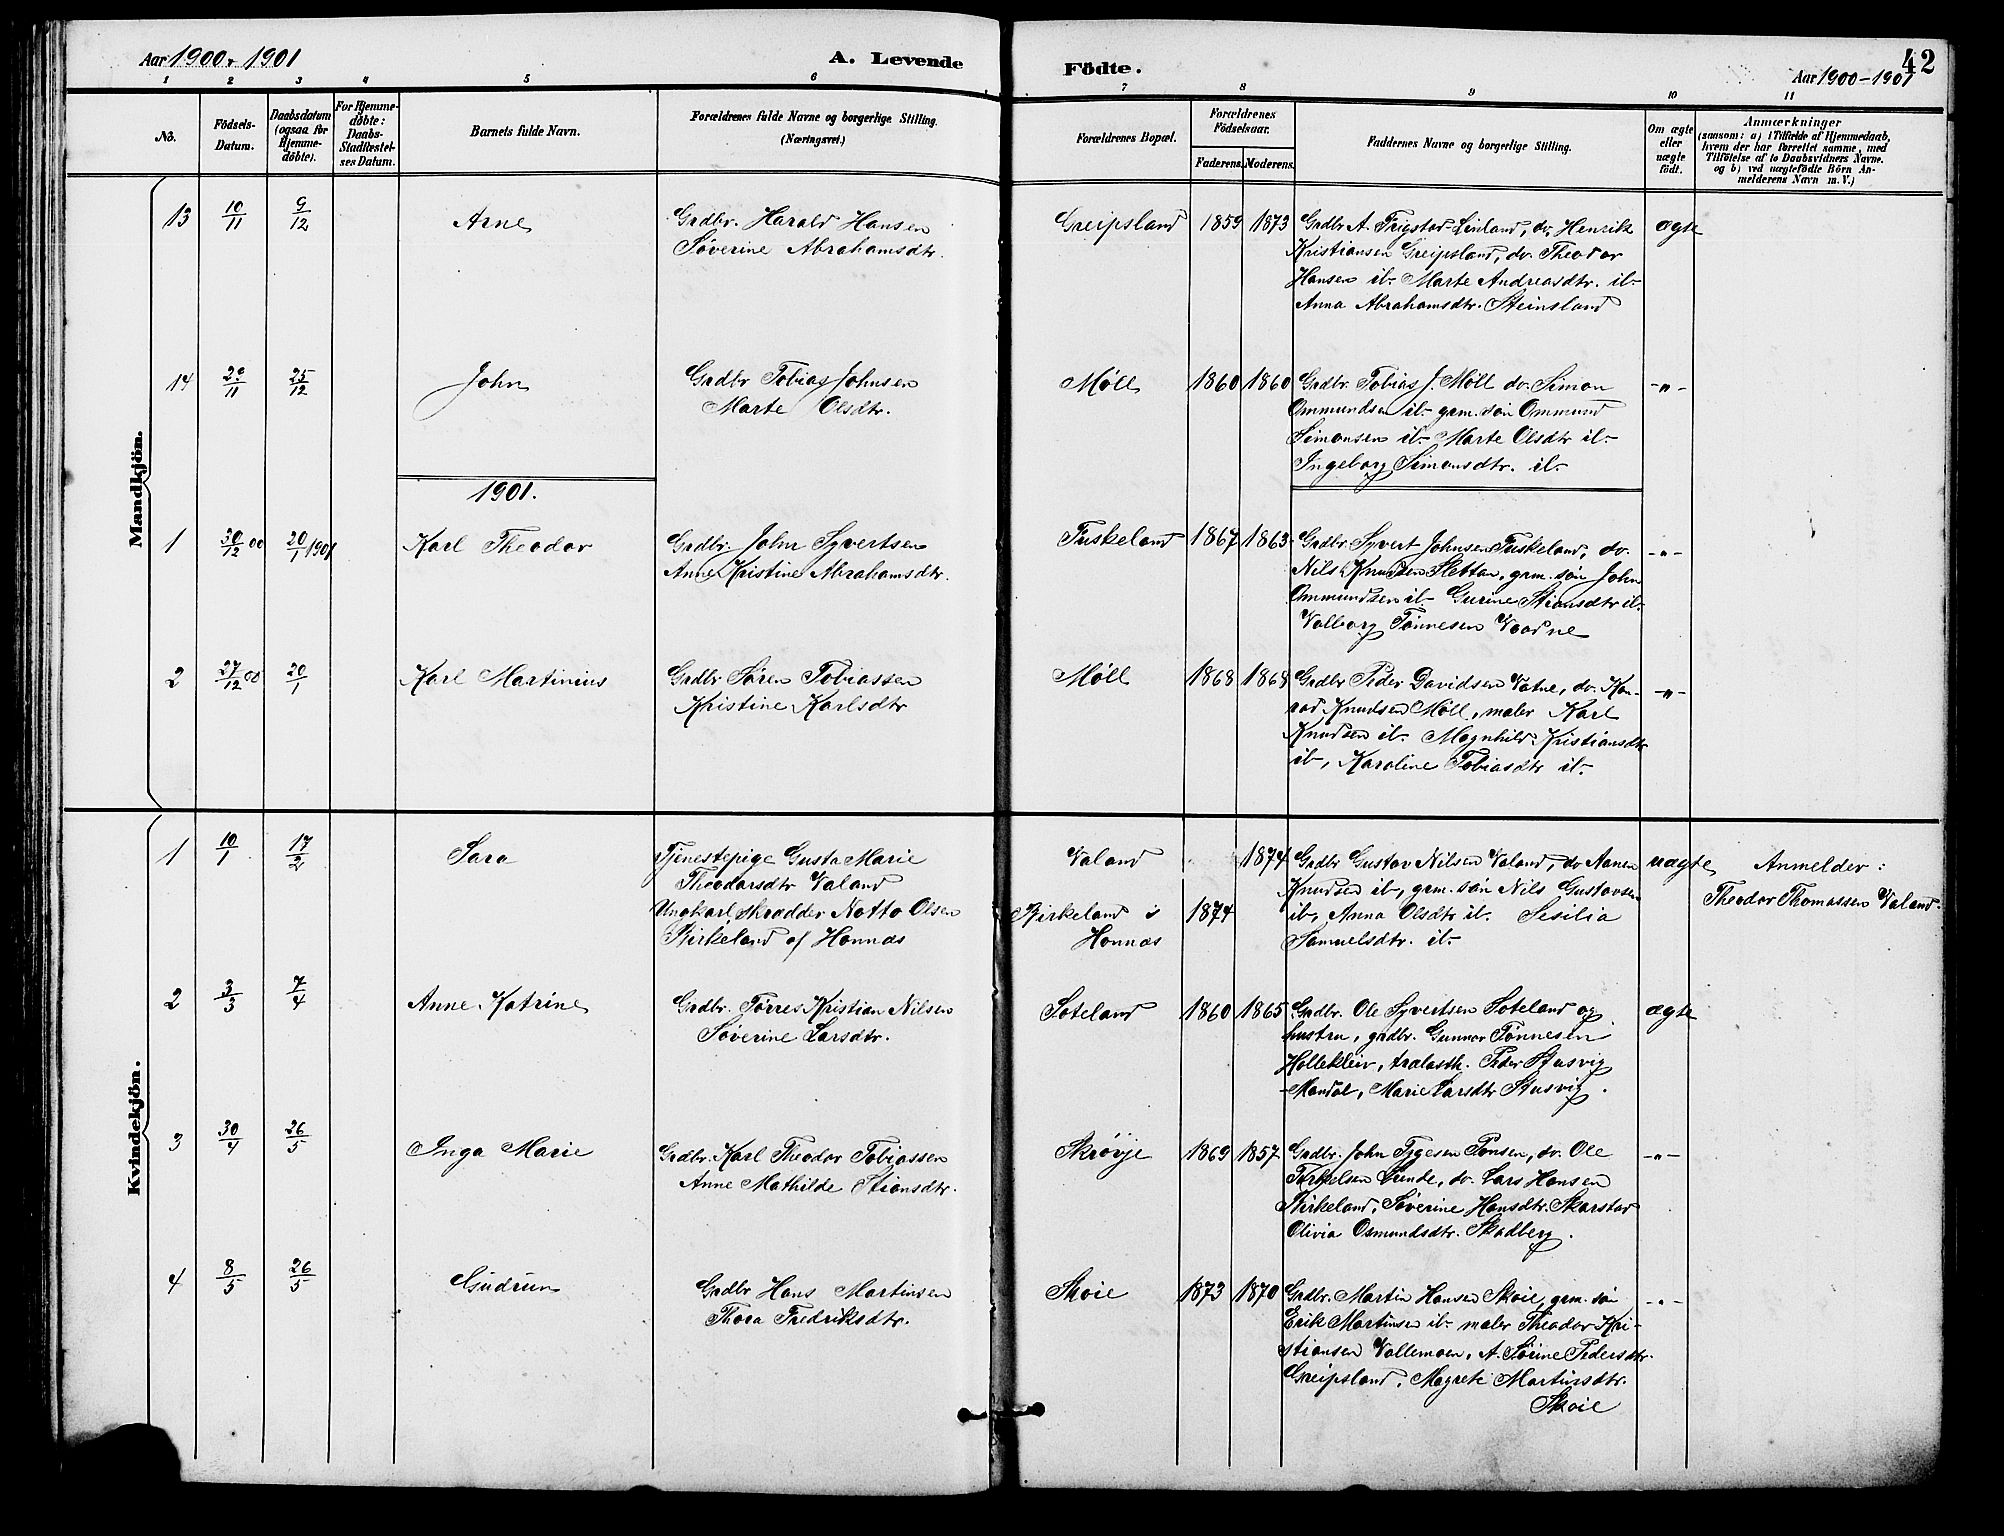 Aar 1900-1901
A. Levende Födte.
Aar 1900-1901
42
1 2 3 4 5 6 7 8 9 10 11
No.
Födsels-Datum.
Daabsdatum (ogsaa for Hjemmedöbte).
For Hjemmedöbte: Daabs-Stadfæstelses Datum.
Barnets fulde Navn.
Forældrenes fulde Navne og borgerlige Stilling.
(Næringsvei.)
Forældrenes Bopæl.
Forældrenes Födselsaar.
Faderens. Moderens.
Faddernes Navne og borgerlige Stilling.
Om ægte eller uægte födt.
Anmærkninger
(saasom: a) i Tilfælde af Hjemmedaab, hvem der har forrettet samme, med Tilföielse af to Daabsvidners Navne. og b) ved uægtefödte Börn Anmelderens Navn m. V.)
Mandkjön.
13 10/11 9/12 Arne Grdbr. Harald Hansen
Søverine Abrahamsdtr.
Greipsland 1859 1873 Grdbr A. Trygstad-Linland, do. Henrik ægte
Kristiansen Greipsland, do. Theodor
Hansen ib- Marte Andreasdtr. ib-
Anna Abrahamsdtr. Steinsland
14 /11 25/12 John Grdbr Tobias Johnsen
Marte Olsdtr.
Møll 1860 1860 Grdbr. Tobias J. Møll do. Simon -"-
Ommundsen ib- grm. søn Ommund
Simonsen ib- Marte Olsdtr ib-
Ingeborg Simonsdtr. ib-
1901.
1 30/12 00 20/1 1901 Karl Theodor Grdbr. John Syvertsen
Anne Kristine Abrahamsdtr.
Fuskeland 1867 1863 Grdbr. Syvert Johnsen Fuskeland, do. -"-
Nils Knudsen Slettan, grm. søn John
Ommundsen ib- Gurine Stiansdtr ib-
Valborg Tønnesen
2 27/12 00 20/1 Karl Martinius Grdbr Søren Tobiassen
Kristine Karlsdtr
Møll 1868 1868 Grdbr Peder Davidsen Vatne, do. Kon- -"-
rad Knudsen Møll, maler Karl
Knudsen ib- Magnhild Kristiansdtr
ib-, Karoline Tobiasdtr ib-
Kvindekjön.
1 10/1 17/2 Sara Tjenestepige Gusta Marie
Theodorsdtr Valand
Ungkarl skrædder Notto Olsen
Birkeland af Honnæs
Valand 1874
Birkeland i 1874
Honnæs
Grdbr Gustav Nilsen Valand, do Aanen uægte
Knudsen ib-, grm. søn Nils Gustavsen
ib-, Anna Olsdtr ib- Sesilia
Samuelsdtr. ib-
Anmelder:
Theodor Thomassen Valand.
2 3/3 7/4 Anne Katrine Grdbr. Tørres Kristian Nilsen
Søverine Larsdtr.
Soteland 1860 1865 Grdbr. Ole Syvertsen Soteland og ægte
hustru, grdbr. Gunnar Tønnesen
Hollekleiv, tralasth. Peder Stusvig
Mandal, Marie Larsdtr Stusvig.
3 30/4 26/5 Inga Marie Grdbr. Karl Theodor Tobiassen
Anne Mathilde Stiansdtr.
Skrøvje 1869 1857 Grdbr. John Tygesen Ponsen, do. Ole -"-
Torkelsen Lunde, do. Lars Hansen
Birkeland, Søverine Hansdtr. Skarstad
Olivia Osmundsdtr. Skadberg.
4 8/5 26/5 Gudrun Grdbr Hans Martinsen
Thora Fredriksdtr.
Skoie 1873 1870 Grdbr. Martin Hansen Skoie, grm. søn -"-
Erik Martinsen ib- maler Theodor Kri-
stiansen Vallemoen, A. Sørine Pedersdtr.
Greipsland, Magrete Martinsdtr.
Skoie